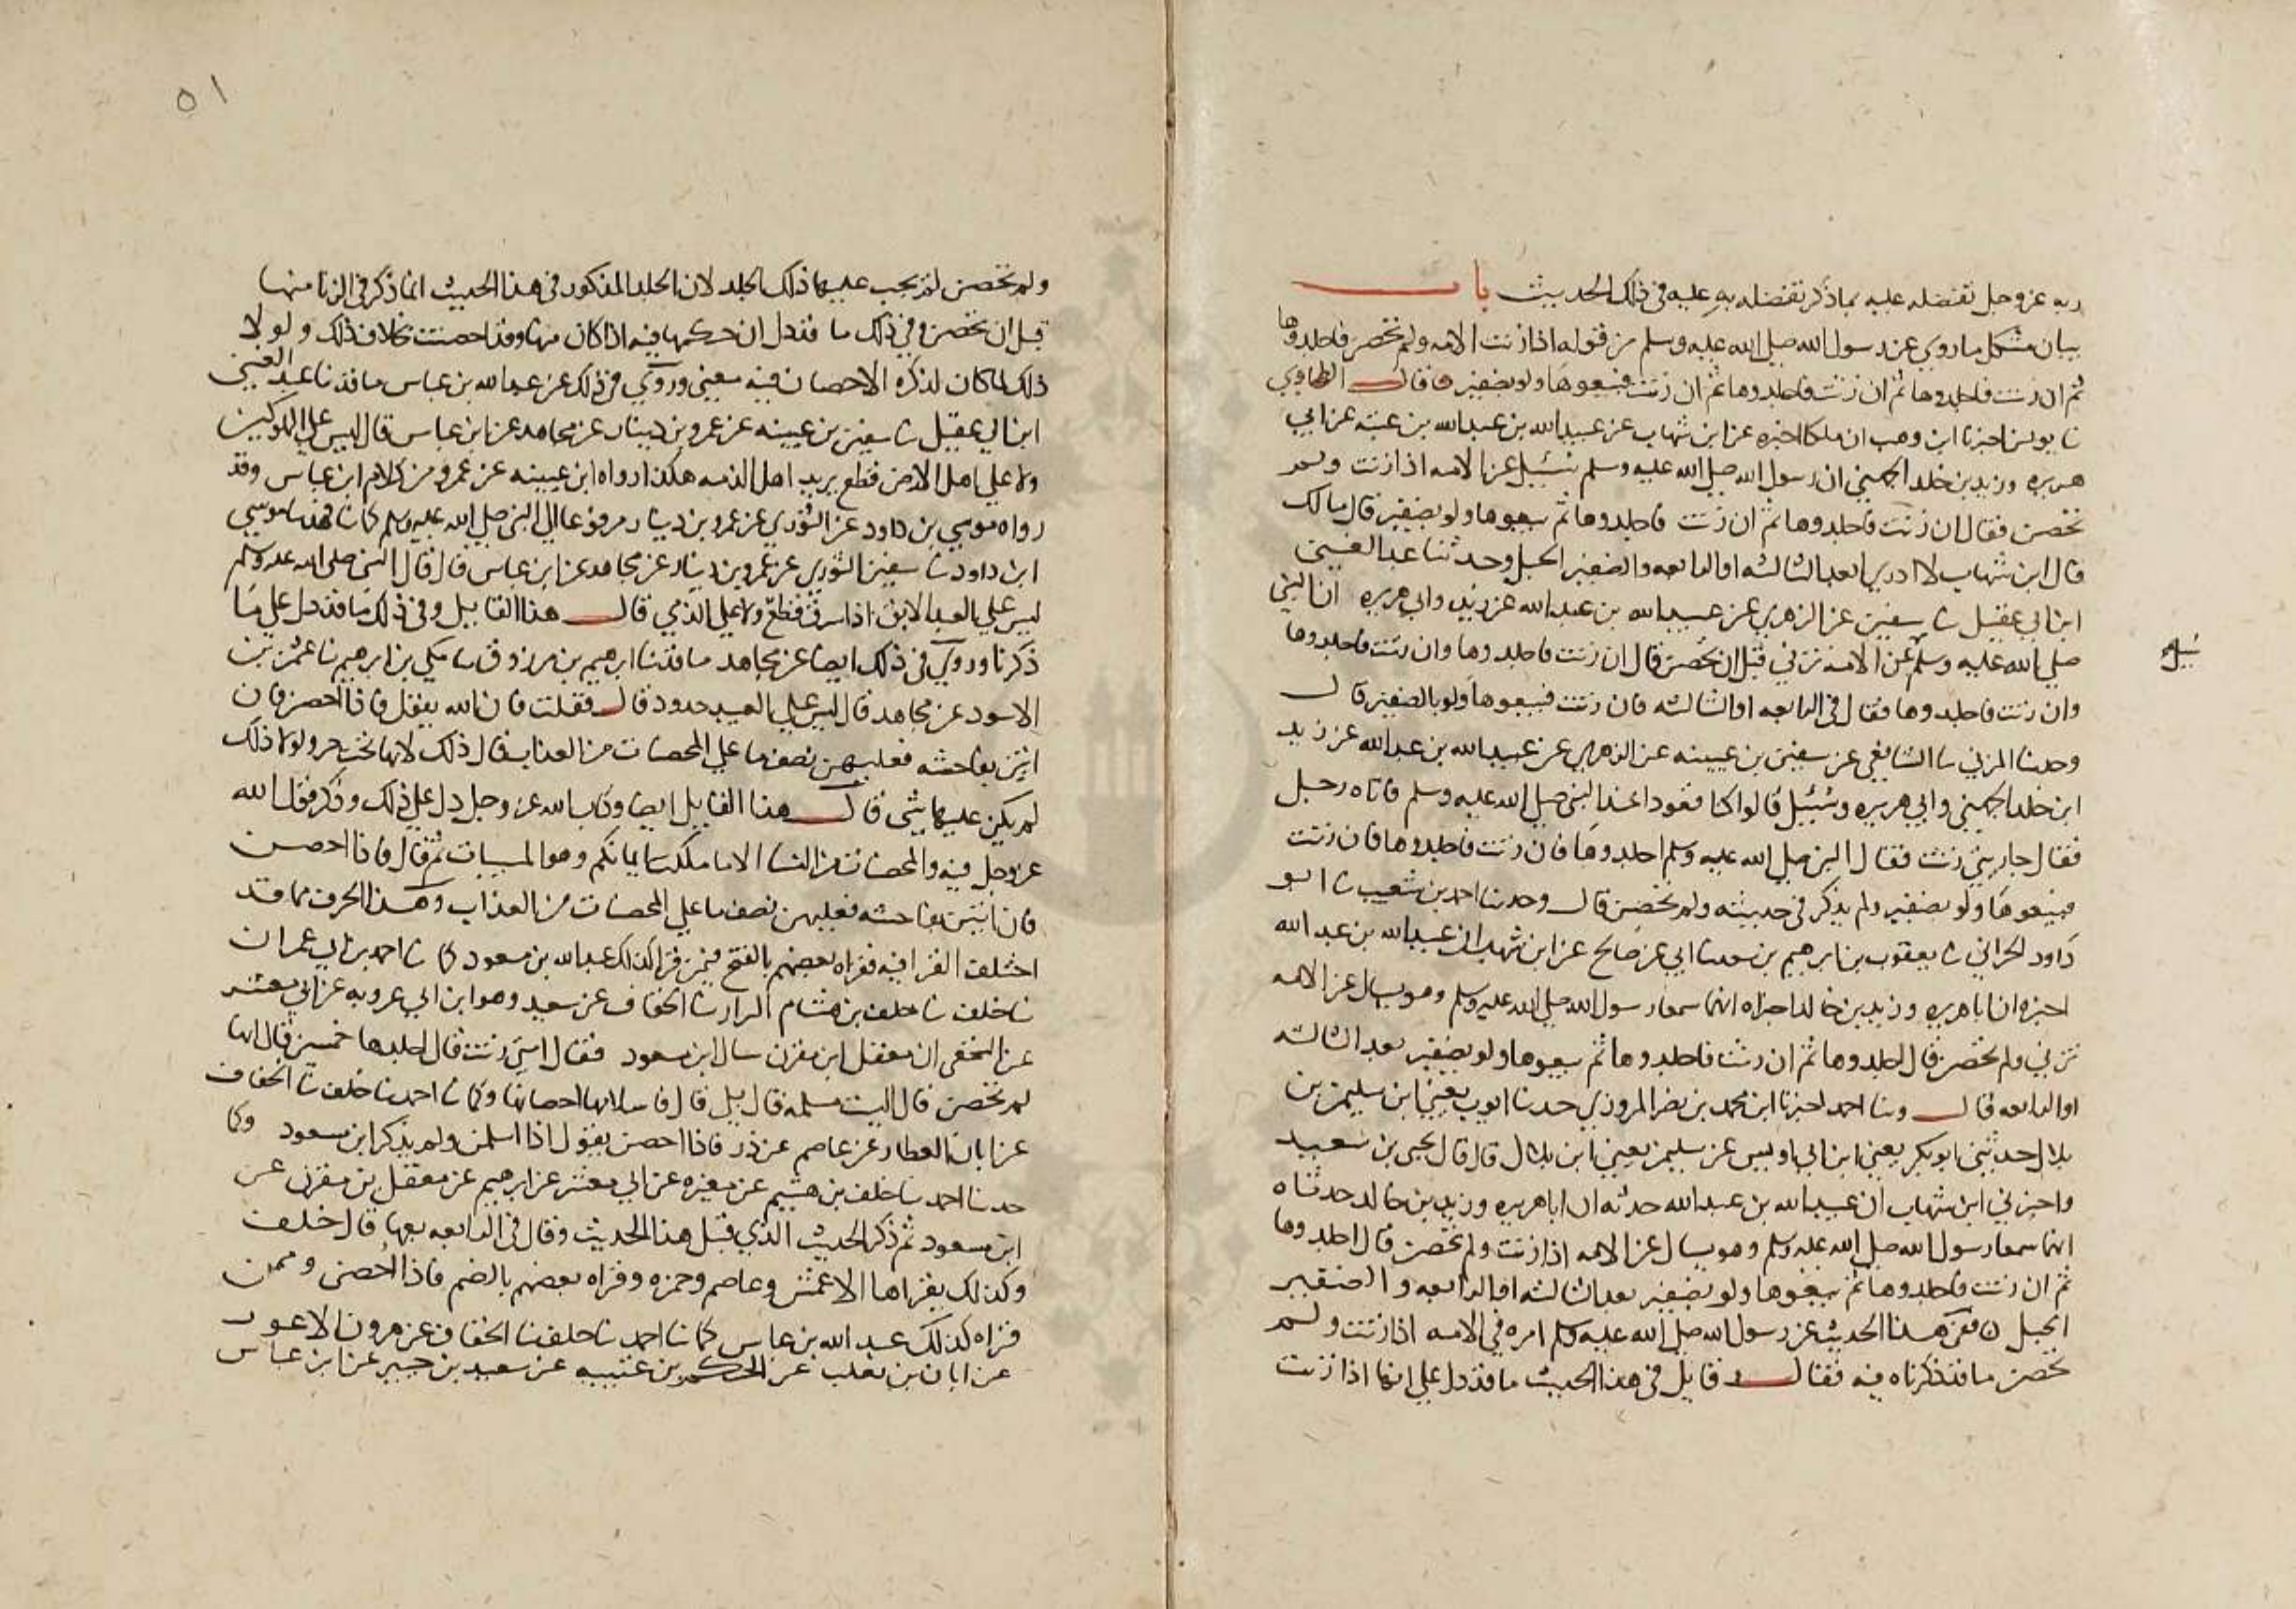 ربه عز وجل تفضله عليه بما ذكر تفضله به عليه في ذلك الحديث باب
بيان مشكل ما روي عن رسول الله صلى الله عليه وسلم من قوله اذا زنت الامه ولم تحصن فاجلدوها
ثم ان زنت فاجلدوها ثم ان زنت فاجلدوها ثم ان زنت فبيعوها ولو بضفير قال الطحاوي
نا يونس اخبرنا ابن وهب ان ملكا اخبره عن ابن شهاب عن عبيد الله بن عبد الله بن عتبه عن ابي
هريره وزيد بن خلد الجهني ان رسول الله صلى الله عليه وسلم سئيل عن الامه اذا زنت ولم
تحصن فقال ان زنت فاجلدوها ثم ان زنت فاجلدوها ثم بيعوها ولو بضفير قال مالك
قال ابن شهاب لا ادري ابعد الثالثه او الرابعه والضفير الحبل وحدثنا عبد الغني
ابن ابي عقيل نا سفين عن الزهري عن عبيد الله بن عبد الله عن زيد وابي هريره ان النبي
صلى الله عليه وسلم عن الامه تزني قبل ان تحصن قال ان زنت فاجلدوها وان زنت فاجلدوها
سئيل
وان زنت فاجلدوها فقال في الرابعه او الثالثه فان زنت فبيعوها ولو بالضفير قال
وحدثنا المزني نا الشافعي عن سفين بن عيينه عن الزهري عن عبيد الله بن عبد الله عن زيد
ابن خلد الجهني وابي هريره وشئيل قالوا كنا قعودا عند النبي صلى الله عليه وسلم فاتاه رجل
فقال جاريتي زنت فقال النبي صلى الله عليه وسلم اجلدوها فان زنت فاجلدوها فان زنت
فبيعوها ولو بضفير ولم يذكر في حديثه ولم تحصن قال وحدثنا احمد بن شعيب نا ابو
داود الحراني نا يعقوب بن ابرهيم بن سعد نا ابي عن صالح عن ابن شهاب ان عبيد الله بن عبد الله
اخبره ان ابا هريره وزيد بن خالد اخبراه انهما سمعا رسول الله صلى الله عليه وسلم وهو يسال عن الامه
تزني ولم تحصن قال اجلدوها ثم ان زنت فاجلدوها ثم بيعوها ولو بضفير بعد الثالثه
او الرابعه قال وبنا احمد اخبرنا ابن محمد بن نصر المروزي حدثنا ايوب يعني ابن سليمن بن
بلال حدثني ابو بكر يعني ابن ابي اويس عن سليمن يعني ابن بلال قال قال يحيى بن سعيد
واخبرني ابن شهاب ان عبيد الله بن عبد الله حدثه ان ابا هريره وزيد بن خالد حدثاه
انهما سمعا رسول الله صلى الله عليه وسلم وهو يسال عن الامه اذا زنت ولم تحصن قال اجلدوها
ثم ان زنت فاجلدوها ثم بيعوها ولو بضفير بعد الثالثه او الرابعه والضفير
الحبل ففي هذا الحديث عن رسول الله صلى الله عليه وسلم امره في الامه اذا زنت ولم
تحصن ما قد ذكرناه فيه فقال قايل في هذا الحديث ما قد دل على انها اذا زنت
٥١
ولم تحصن لم يجب عليها ذلك الجلد لان الجلد المذكور في هذا الحديث انما ذكر في الزنا منها
قبل ان تحصن وفي ذلك ما قد دل ان حكمها فيه اذا كان منها وقد احصنت بخلاف ذلك ولولا
ذلك لما كان لذكره الاحصان فيه معنى وروي في ذلك عن عبد الله بن عباس ما قد نا عبد الغني
ابن ابي عقيل نا سفين بن عيينه عن عمرو بن دينار عن مجاهد عن ابن عباس قال ليس على المملوكين
ولا على اهل الارض قطع يريد اهل الذمه هكذا رواه ابن عيينه عن عمرو من كلام ابن عباس وقد
رواه موسى بن داود عن الثوري عن عمرو بن دينار مرفوعا الى النبي صلى الله عليه وسلم كما نا فهد نا موسى
ابن داود نا سفين الثوري عن عمرو بن دينار عن مجاهد عن ابن عباس قال قال النبي صلى الله عليه وسلم
ليس على العبد الابق اذا سرق قطع ولا على الذمي قال هذا القايل وفي ذلك ما قد دل على ما
ذكرنا وروي في ذلك ايضا عن مجاهد ما قد نا ابرهيم بن مرزوق نا مكي بن ابرهيم نا عثمن بن
الاسود عن مجاهد قال ليس على العبد حدود قال فقلت فان الله يقول فاذا احصن فان
اتين بفاحشه فعليهن نصف ما على المحصنات من العذاب قال ذلك لانها تحت حر ولولا ذلك
لم يكن عليها شي قال هذا القايل ايضا وكتاب الله عز وجل دل على ذلك وذكر قول الله
عز وجل فيه والمحصنات من النسا الا ما ملكت ايمانكم وهو المسبيات ثم قال فاذا احصن
فان اتين بفاحشه فعليهن نصف ما على المحصنات من العذاب وهذا الحرف مما قد
اختلف القرا فيه فقراه بعضهم بالفتح فممن قرا كذلك عبد الله بن مسعود كما نا احمد بن ابي عمران
نا خلف نا خلف بن هشام البزار نا الخفاف عن سعيد وهو ابن ابي عروبه عن ابي معشر
عن النخعي ان معقل ابن مقرن سال ابن مسعود فقال امتي زنت قال اجلدها خمسين قال انها
لم تحصن قال اليست مسلمه قال بلى قال فاسلامها احصانها وكما نا احمد نا خلف نا الخفاف
عن ابان العطار عن عاصم عن زر فاذا احصن يقول اذا اسلمن ولم يذكر ابن مسعود وكما
حدثنا احمد نا خلف بن هشيم عن مغيره عن ابي معشر عن ابرهيم عن معقل بن مقرن عن
ابن مسعود ثم ذكر الحديث الذي قبل هذا الحديث وقال في الرابعه بعها قال خلف
وكذلك يقراها الاعمش وعاصم وحمزه وقراه بعضهم بالضم فاذا احصن وممن
قراه كذلك عبد الله بن عباس كما نا احمد نا خلف نا الخفاف عن هرون الاعور
عن ابان بن تغلب عن الحكم بن عتيبه عن سعيد بن جبير عن ابن عباس